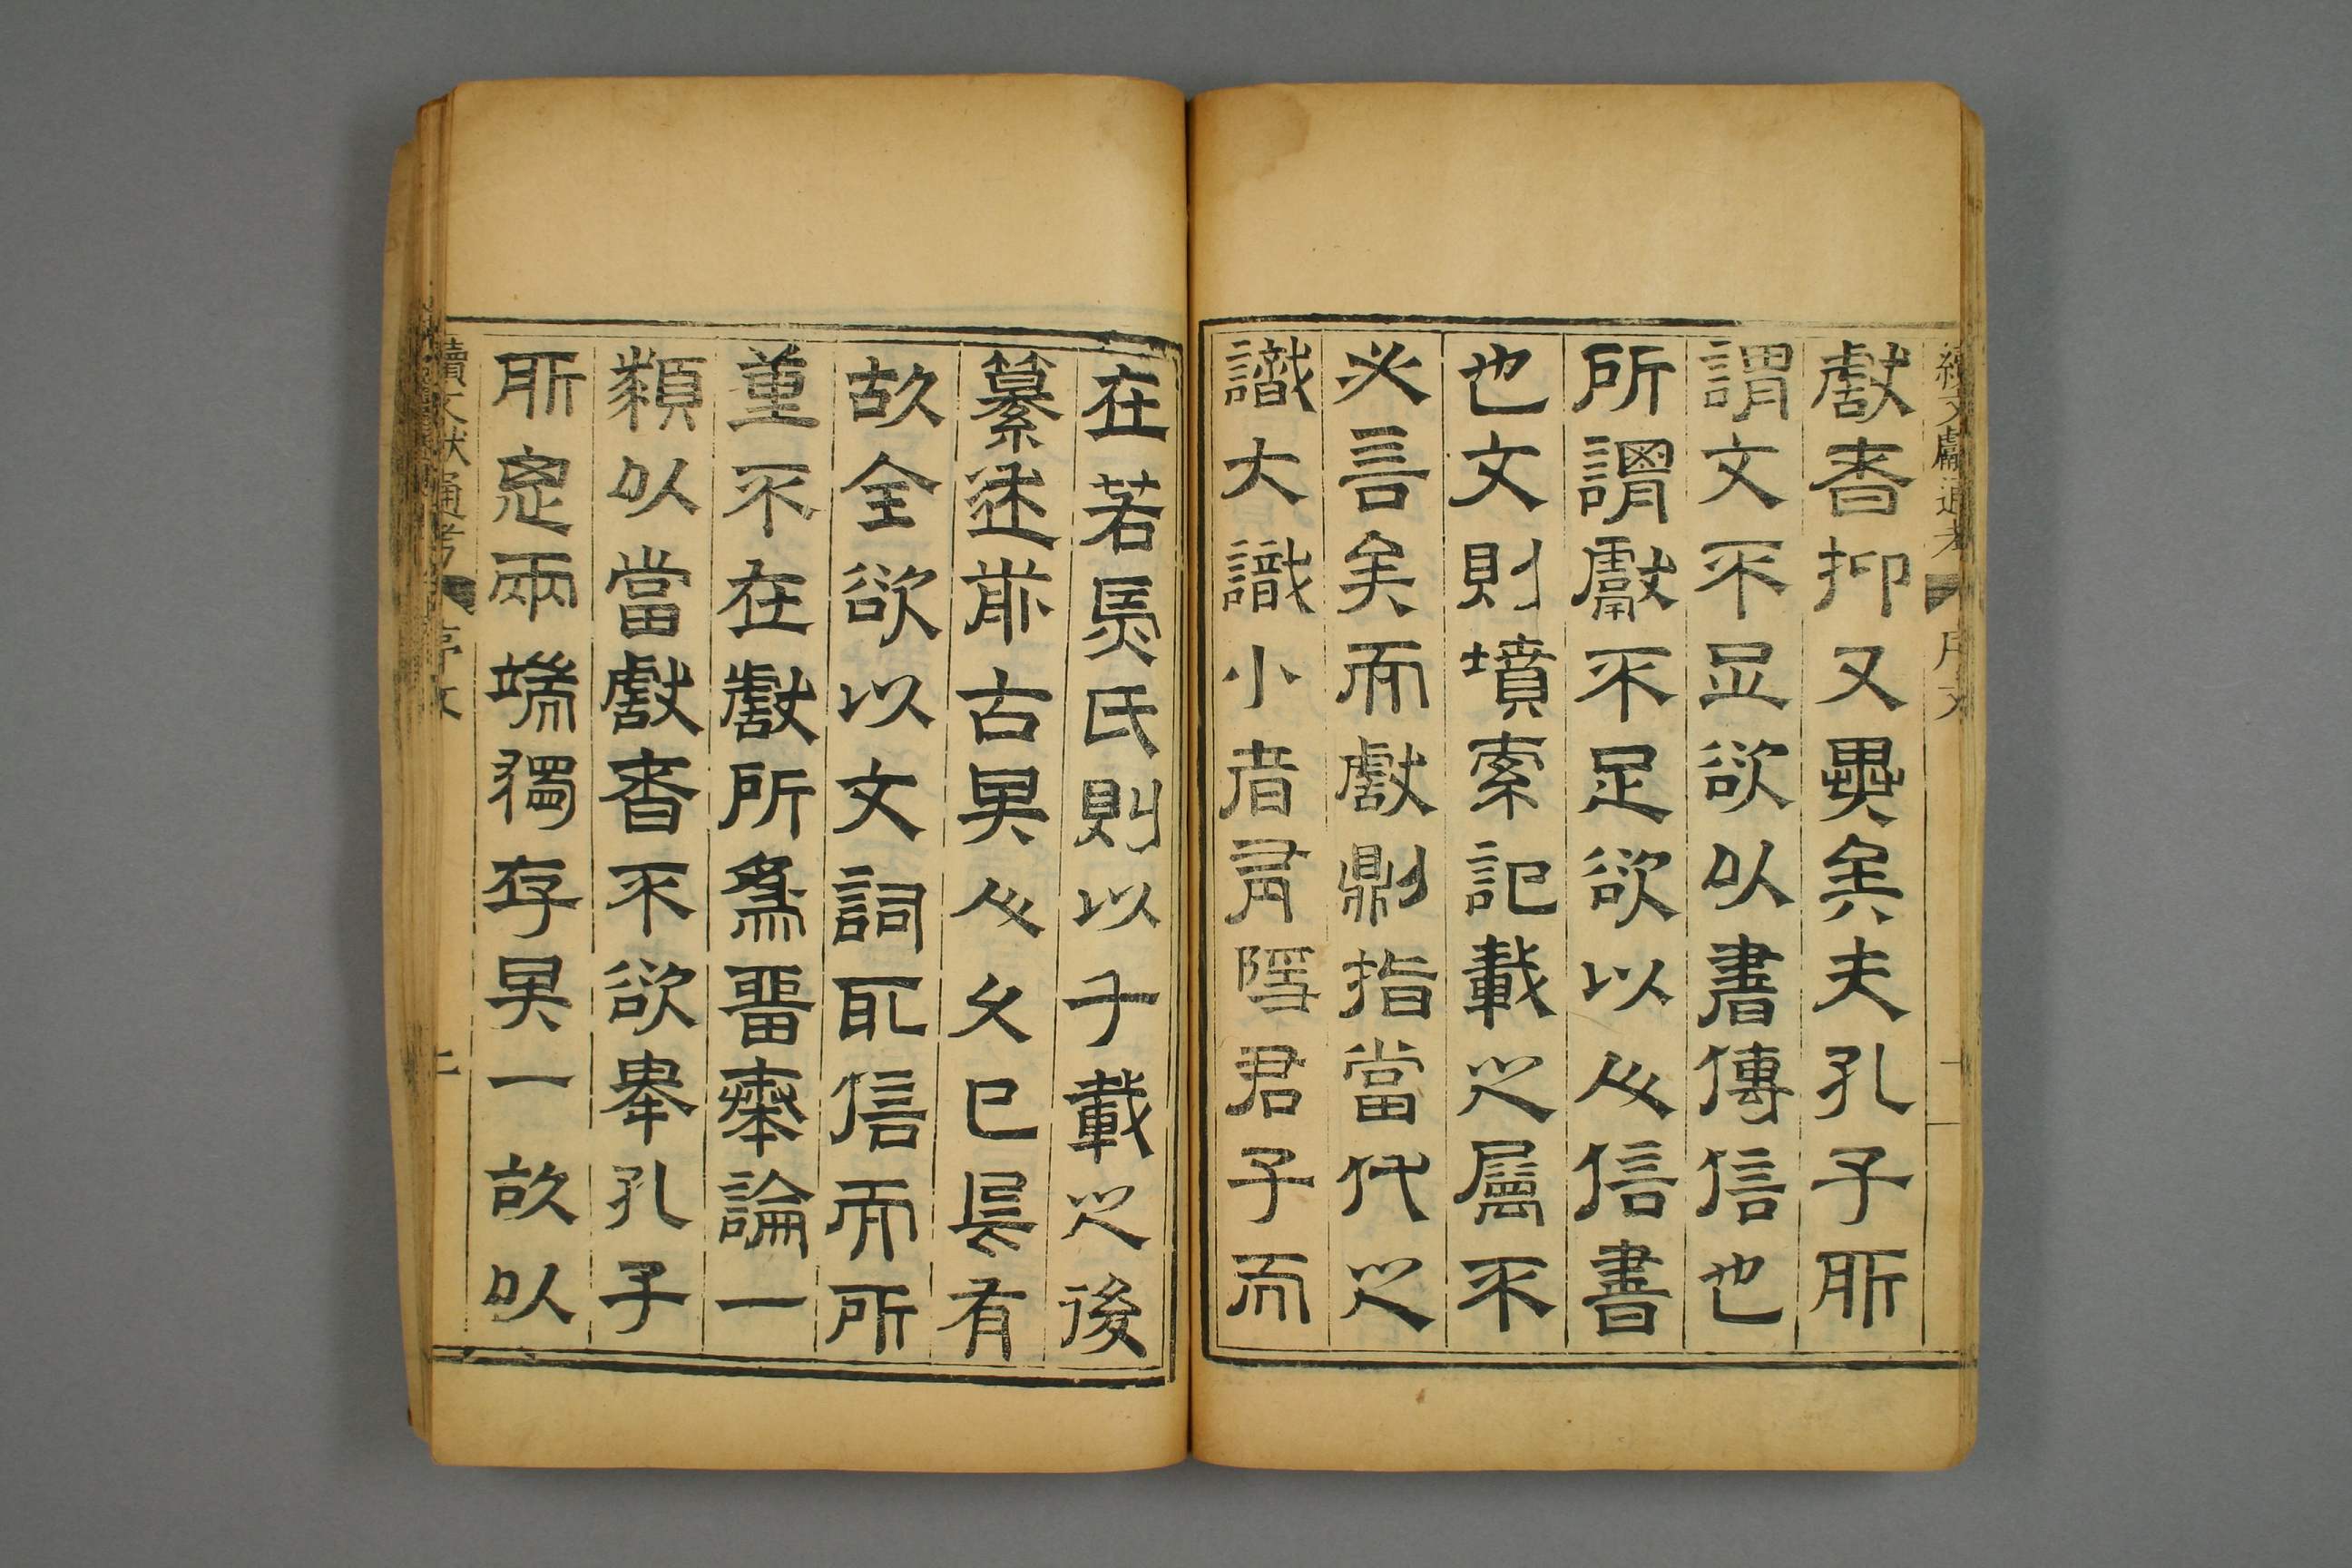 續文獻通考 序文
獻者抑又異矣夫孔子所
謂文不足欲以書傳信也
所謂獻不足欲以人信書
也文則墳索記載之屬不
必言矣而獻則指當代之
識大識小者隱君子而
在若馬氏則以千載之後
纂述前古其人久已烏有
故全欲以文詞取信而所
重不在獻所為奏論一
類以當獻者不欲舉孔子
所定兩端獨存其一故以
續文獻通考 序文